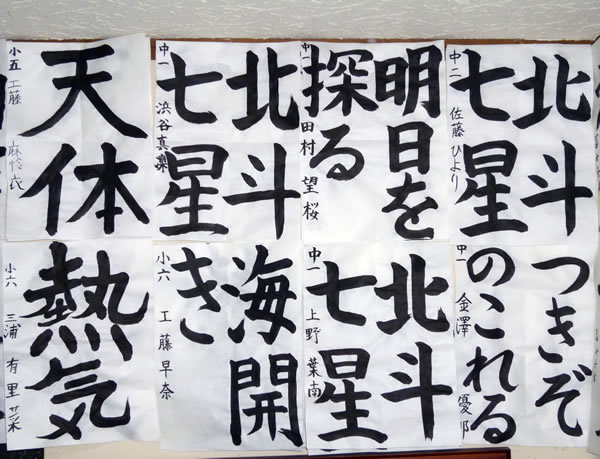 天体
小五 工藤 麻伶衣
北斗
七星
中一 浜谷真
明日を
探る
中一 田村 望桜
北斗
七星
中二 佐藤ひより
熱気
小六 三浦 有里菜
海開
き
小六 工藤早奈
北斗
七星
中一 上野 葉南
つきぞ
のこれる
中一 金澤 優那